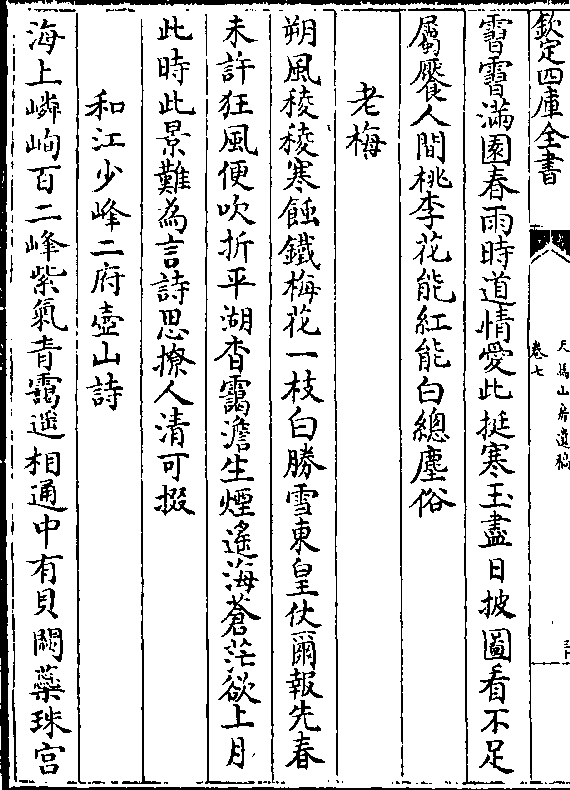 欽定四庫全書
天馬山房遺稿
卷七
霅霅滿園春雨時道情愛此挺寒玉盡日披圖看不足
屬饜人間桃李花能紅能白總塵俗
老梅
朔風稜稜寒蝕鐵梅花一枝白勝雪東皇仗爾報先春
未許狂風便吹折平湖杳靄澹生煙遙海蒼茫欲上月
此時此景難為言詩思撩人清可掇
和江少峰二府壺山詩
海上嶙峋百二峰紫氣青靄遥相通中有貝闕蘂珠宮